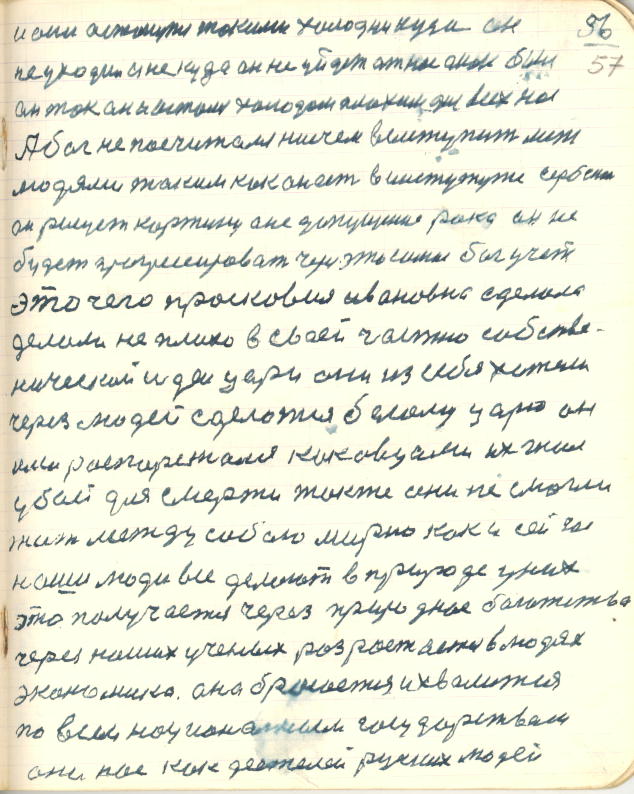 56
57
и они остануты такими холодн куда он
не уходил и некуда он не уйдет от нас он как был
он так он и остался холодом плохим для всех нас
А бог не посчитался ни чем всем
людями таким как она есть в институте сербски
он рисует картину она допущение рака он не
будет прогрессироват через эты сами бог учет
это чего просковия ивановна сделала
делали не плохо в своей частно собстве-
нической идеи цари они из себя хотели
через людей сделатся белому царю он
ими распоряжался как овцами их гнал
убой для смерти такте они не смогли
жит между собою мирно как и сей час
наши люди все делают в природе у них
это получается через природное богатства
через наших ученых розростается в людях
экономика. она бросается и хвалится
по всем национальным государствам
они нас как деятелей руских людей